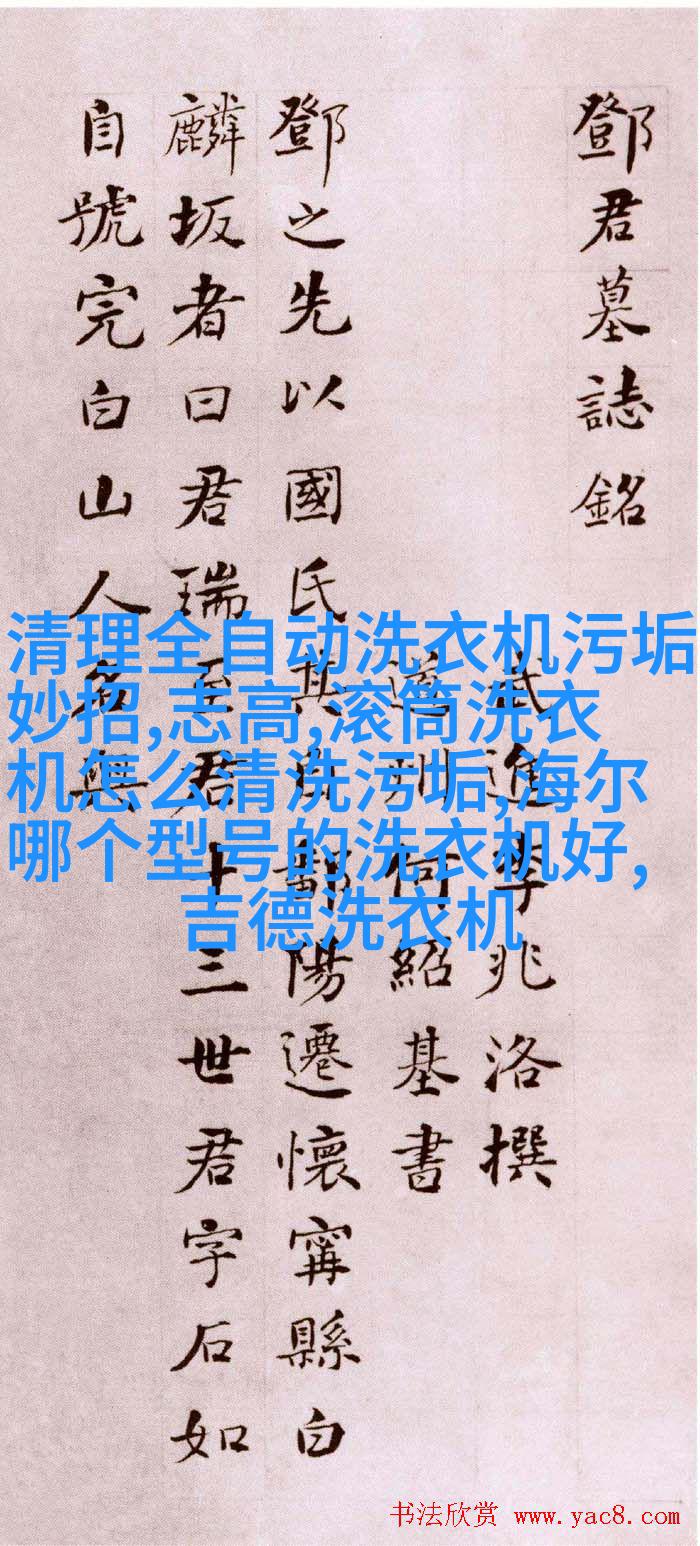 鄧君墓誌銘
武進李兆洛撰
道州何紹基書
鄧之先以國氏其自鄱陽遷懷寧縣白
麟坂者曰君瑞至君十三世君字石如
自號完白山人名無
清理全自动洗衣机污垢
妙招,志高,滚筒洗衣
机怎么清洗污垢,海尔
哪个型号的洗衣机好,
吉德洗衣机
书法欣赏 www.yac8.com